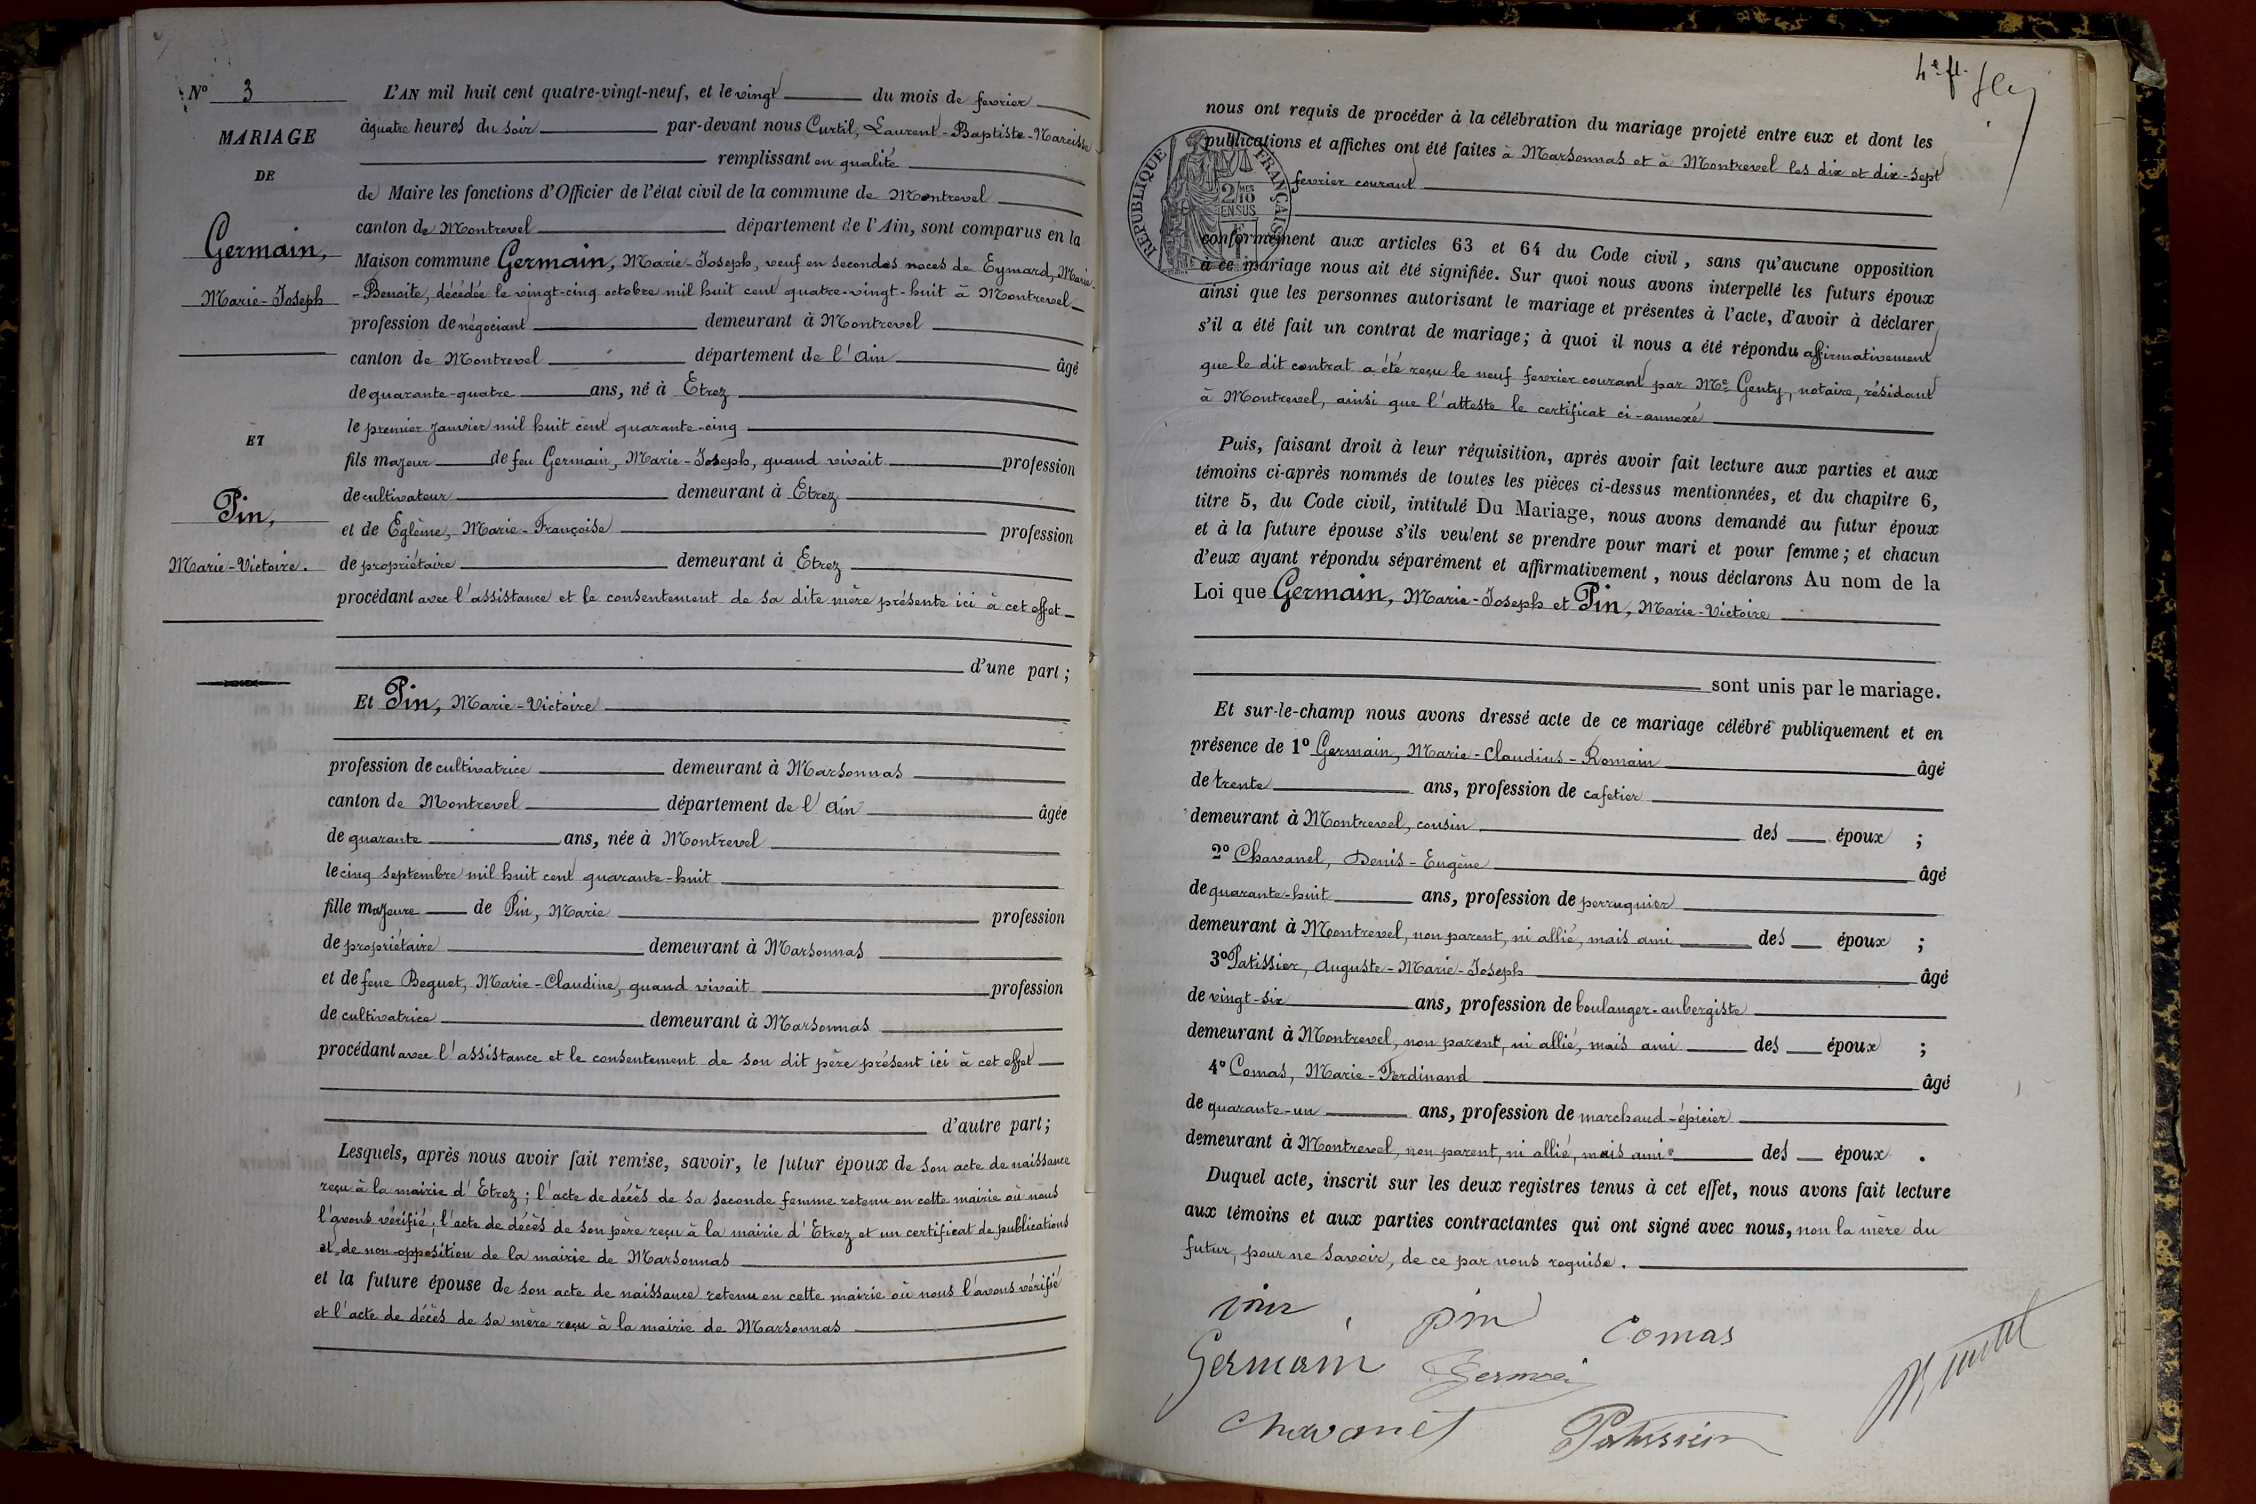 N° 3
MARIAGE
DE
Germain,
Marie-Joseph
ET
Pin,
Marie-Victoire.
L'AN mil huit cent quatre-vingt-neuf, et le vingt du mois de fevrier
à quatre heures du soir par-devant nous Curtil, Laurent-Baptiste-Narcisse
remplissant en qualité
de Maire les fonctions d'Officier de l'état civil de la commune de Montrevel
canton de Montrevel département de l'Ain, sont comparus en la
Maison commune Germain, Marie-Joseph, veuf en secondes noces de Eymard, Marie-
-Benoite, décédée le vingt-cinq octobre mil huit cent quatre-vingt-huit à Montrevel
profession de négociant demeurant à Montrevel
canton de Montrevel département de l'Ain âgé
de quarante-quatre ans, né à Etrez
le premier janvier mil huit cent quarante-cinq
fils majeur de feu Germain, Marie-Joseph, quand vivait profession
de cultivateur demeurant à Etrez
et de Eglème, Marie-Françoise profession
de propriétaire demeurant à Etrez
procédant avec l'assistance et le consentement de sa dite mère présente ici à cet effet
d'une part;
Et Pin, Marie-Victoire
profession de cultivatrice demeurant à Marsonnas
canton de Montrevel département de l'Ain âgée
de quarante ans, née à Montrevel
le cinq septembre mil huit cent quarante-huit
fille majeure de Pin, Marie profession
de propriétaire demeurant à Marsonnas
et de feue Beguet, Marie-Claudine, quand vivait profession
de cultivatrice demeurant à Marsonnas
procédant avec l'assistance et le consentement de son dit père présent ici à cet effet
d'autre part;
Lesquels, après nous avoir fait remise, savoir, le futur époux de son acte de naissance
reçu à la mairie d'Etrez; l'acte de décès de sa seconde femme retenu en cette mairie où nous
l'avons vérifié; l'acte de décès de son père reçu à la mairie d'Etrez et un certificat de publications
et de non-opposition de la mairie de Marsonnas
et la future épouse de son acte de naissance retenu en cette mairie où nous l'avons vérifié
et l'acte de décès de sa mère reçu à la mairie de Marsonnas
4e ft.
nous ont requis de procéder à la célébration du mariage projeté entre eux et dont les
publications et affiches ont été faites à Marsonnas et à Montrevel les dix et dix-sept
fevrier courant
REPUBLIQUE FRANÇAISE
2 MES 10
EN SUS
conformément aux articles 63 et 64 du Code civil, sans qu'aucune opposition
à ce mariage nous ait été signifiée. Sur quoi nous avons interpellé les futurs époux
ainsi que les personnes autorisant le mariage et présentes à l'acte, d'avoir à déclarer
s'il a été fait un contrat de mariage; à quoi il nous a été répondu affirmativement
que le dit contrat a été reçu le neuf fevrier courant par Me Genty, notaire, résidant
à Montrevel, ainsi que l'atteste le certificat ci-annexé
Puis, faisant droit à leur réquisition, après avoir fait lecture aux parties et aux
témoins ci-après nommés de toutes les pièces ci-dessus mentionnées, et du chapitre 6,
titre 5, du Code civil, intitulé Du Mariage, nous avons demandé au futur époux
et à la future épouse s'ils veulent se prendre pour mari et pour femme; et chacun
d'eux ayant répondu séparément et affirmativement, nous déclarons Au nom de la
Loi que Germain, Marie-Joseph et Pin, Marie-Victoire
sont unis par le mariage.
Et sur-le-champ nous avons dressé acte de ce mariage célébré publiquement et en
présence de 1° Germain, Marie-Claudius-Romain âgé
de trente ans, profession de cafetier
demeurant à Montrevel, cousin des époux ;
2° Chavanel, Denis-Eugène âgé
de quarante-huit ans, profession de perruquier
demeurant à Montrevel, non parent, ni allié, mais ami des époux ;
3° Patissier, Auguste-Marie-Joseph âgé
de vingt-six ans, profession de boulanger-aubergiste
demeurant à Montrevel, non parent, ni allié, mais ami des époux ;
4° Comas, Marie-Ferdinand âgé
de quarante-un ans, profession de marchand-épicier
demeurant à Montrevel, non parent, ni allié, mais ami des époux .
Duquel acte, inscrit sur les deux registres tenus à cet effet, nous avons fait lecture
aux témoins et aux parties contractantes qui ont signé avec nous, non la mère du
futur, pour ne savoir, de ce par nous requise.
pin
Comas
Germain Germain
Chavanel Patissier